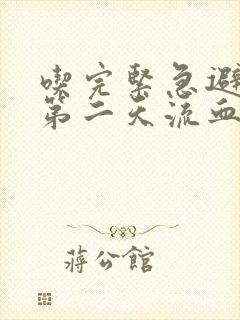 喫完緊急避
第二天流血
蔣公館